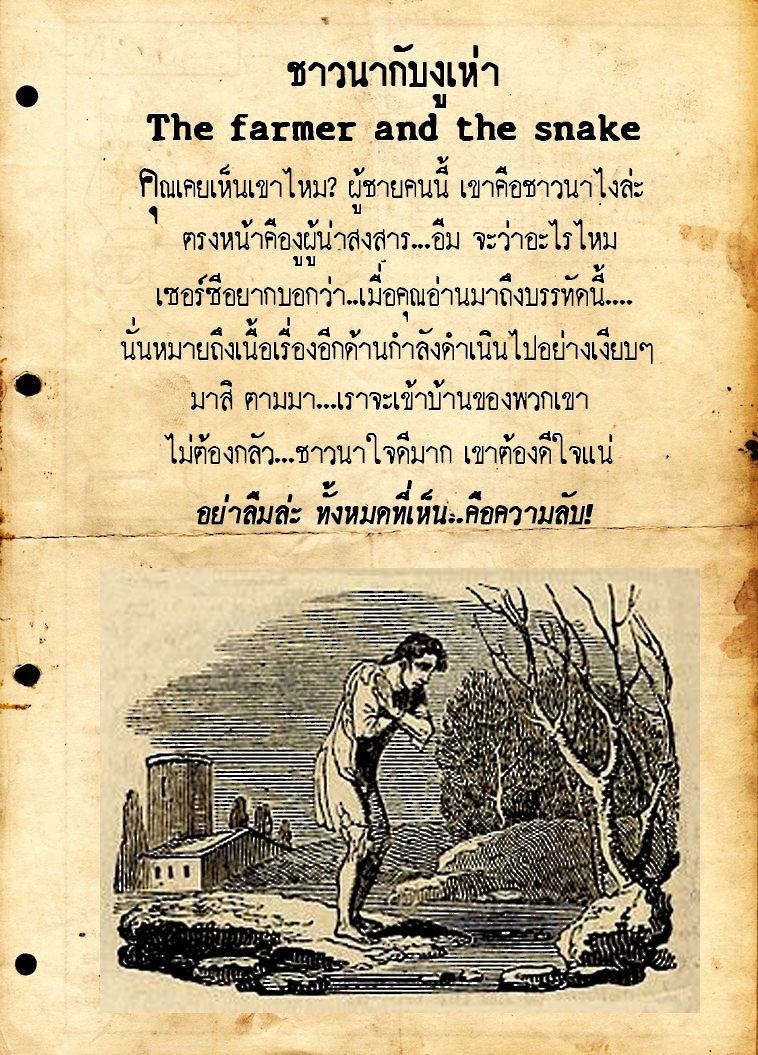 ชาวนากับงูเห่า
The farmer and the snake
คุณเคยเห็นเขาไหม? ผู้ชายคนนี้ เขาคือชาวนาไงล่ะ
ตรงหน้าคืองูผู้น่าสงสาร...อืม จะว่าอะไรไหม
เซอร์ซีอยากบอกว่า..เมื่อคุณอ่านมาถึงบรรทัดนี้....
นั่นหมายถึงเนื้อเรื่องอีกด้านกำลังดำเนินไปอย่างเงียบๆ
มาสิ ตามมา...เราจะเข้าบ้านของพวกเขา
ไม่ต้องกลัว...ชาวนาใจดีมาก เขาต้องดีใจแน่
อย่าลืมล่ะ ทั้งหมดที่เห็น..คือความลับ!